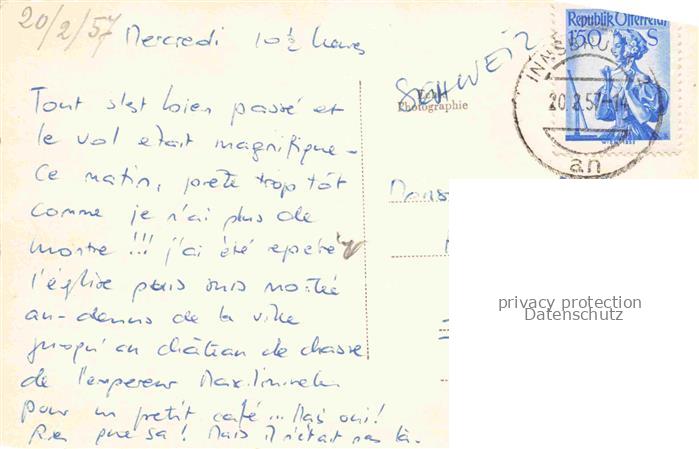 20/2/57
Mercredi 10½ heures
SCHWEIZ
Echte
Photographie
Republik Österreich
1'50 S
INNSBRUCK
20.8.57-14
an
Tout s'est bien passé et
le vol etait magnifique -
Ce matin, prete trop tôt
comme je n'ai plus de
montre !!! j'ai été repéré
l'église puis suis montée
au-dessus de la ville
jusqu'au château de chasse
de l'empereur Maximinelu
pour un petit café... Mais oui!
Rien que sa! Mais il n'était pas là.
Mons
privacy protection
Datenschutz